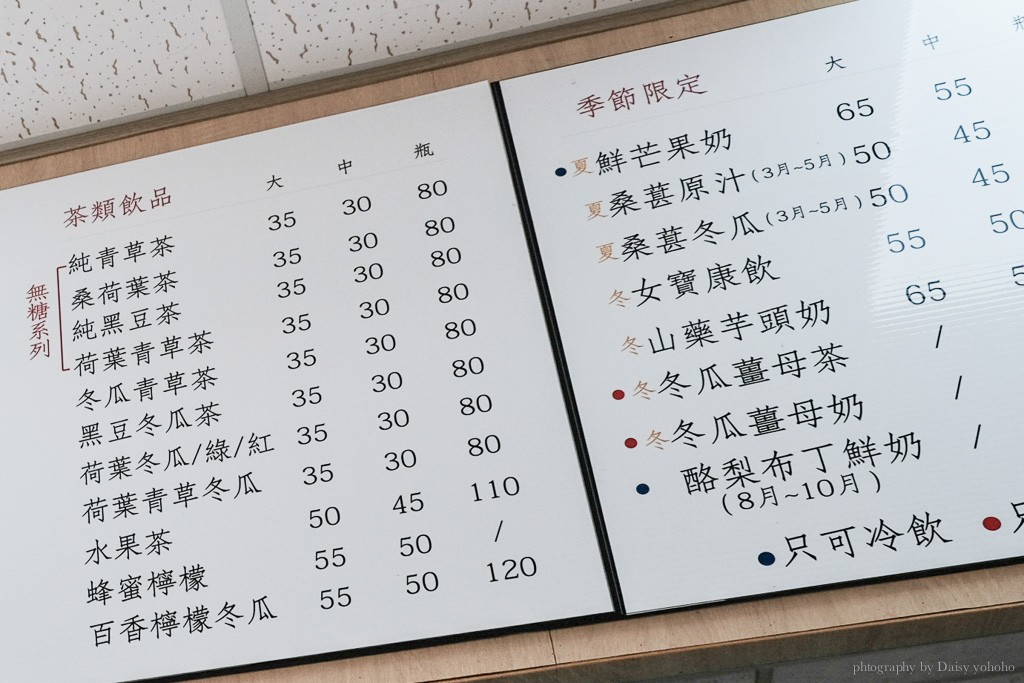 茶類飲品 大 中 瓶
無糖系列
純青草茶 35 30 80
桑荷葉茶 35 30 80
純黑豆茶 35 30 80
荷葉青草茶 35 30 80
冬瓜青草茶 35 30 80
黑豆冬瓜茶 35 30 80
荷葉冬瓜/綠/紅 35 30 80
荷葉青草冬瓜 35 30 80
水果茶 50 45 110
蜂蜜檸檬 55 50 /
百香檸檬冬瓜 55 50 120
季節限定 大 中
夏鮮芒果奶 65 55
夏桑葚原汁(3月~5月) 50 45
夏桑葚冬瓜(3月~5月) 50 45
冬女寶康飲 55 50
冬山藥芋頭奶 65
冬冬瓜薑母茶 /
冬冬瓜薑母奶 /
酪梨布丁鮮奶 /
(8月~10月)
只可冷飲
phtography by Daisy yohoho